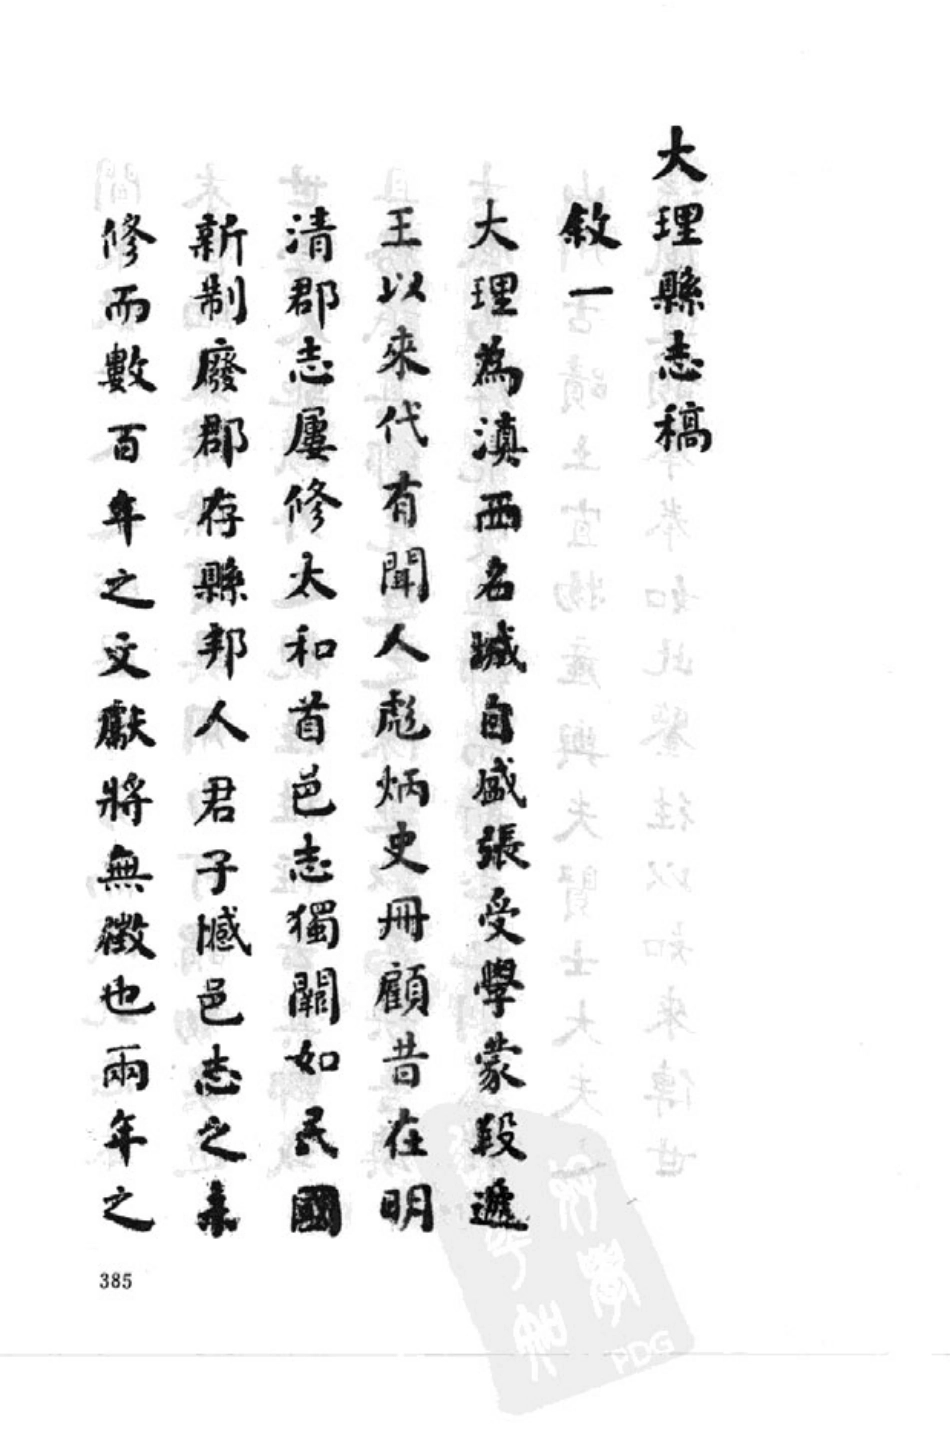 大理縣志稿
敘一
大理為滇西名城自盛張受學蒙段遞
王以來代有聞人彪炳史冊顧昔在明
清郡志屢修太和首邑志獨闕如民國
新制廢郡存縣邦人君子憾邑志之未
修而數百年之文獻將無徵也兩年之
385
PDG